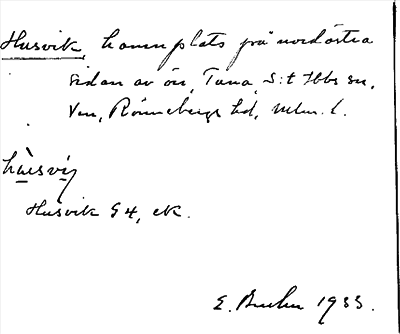 Husvik, hamnplats på nordöstra
sidan av ön, Tuna, S:t Ibbs sn,
Ven, Rönnebergs hd, Mlm. l.
hùsvig
Husvik G4, ek.
E. 1933.